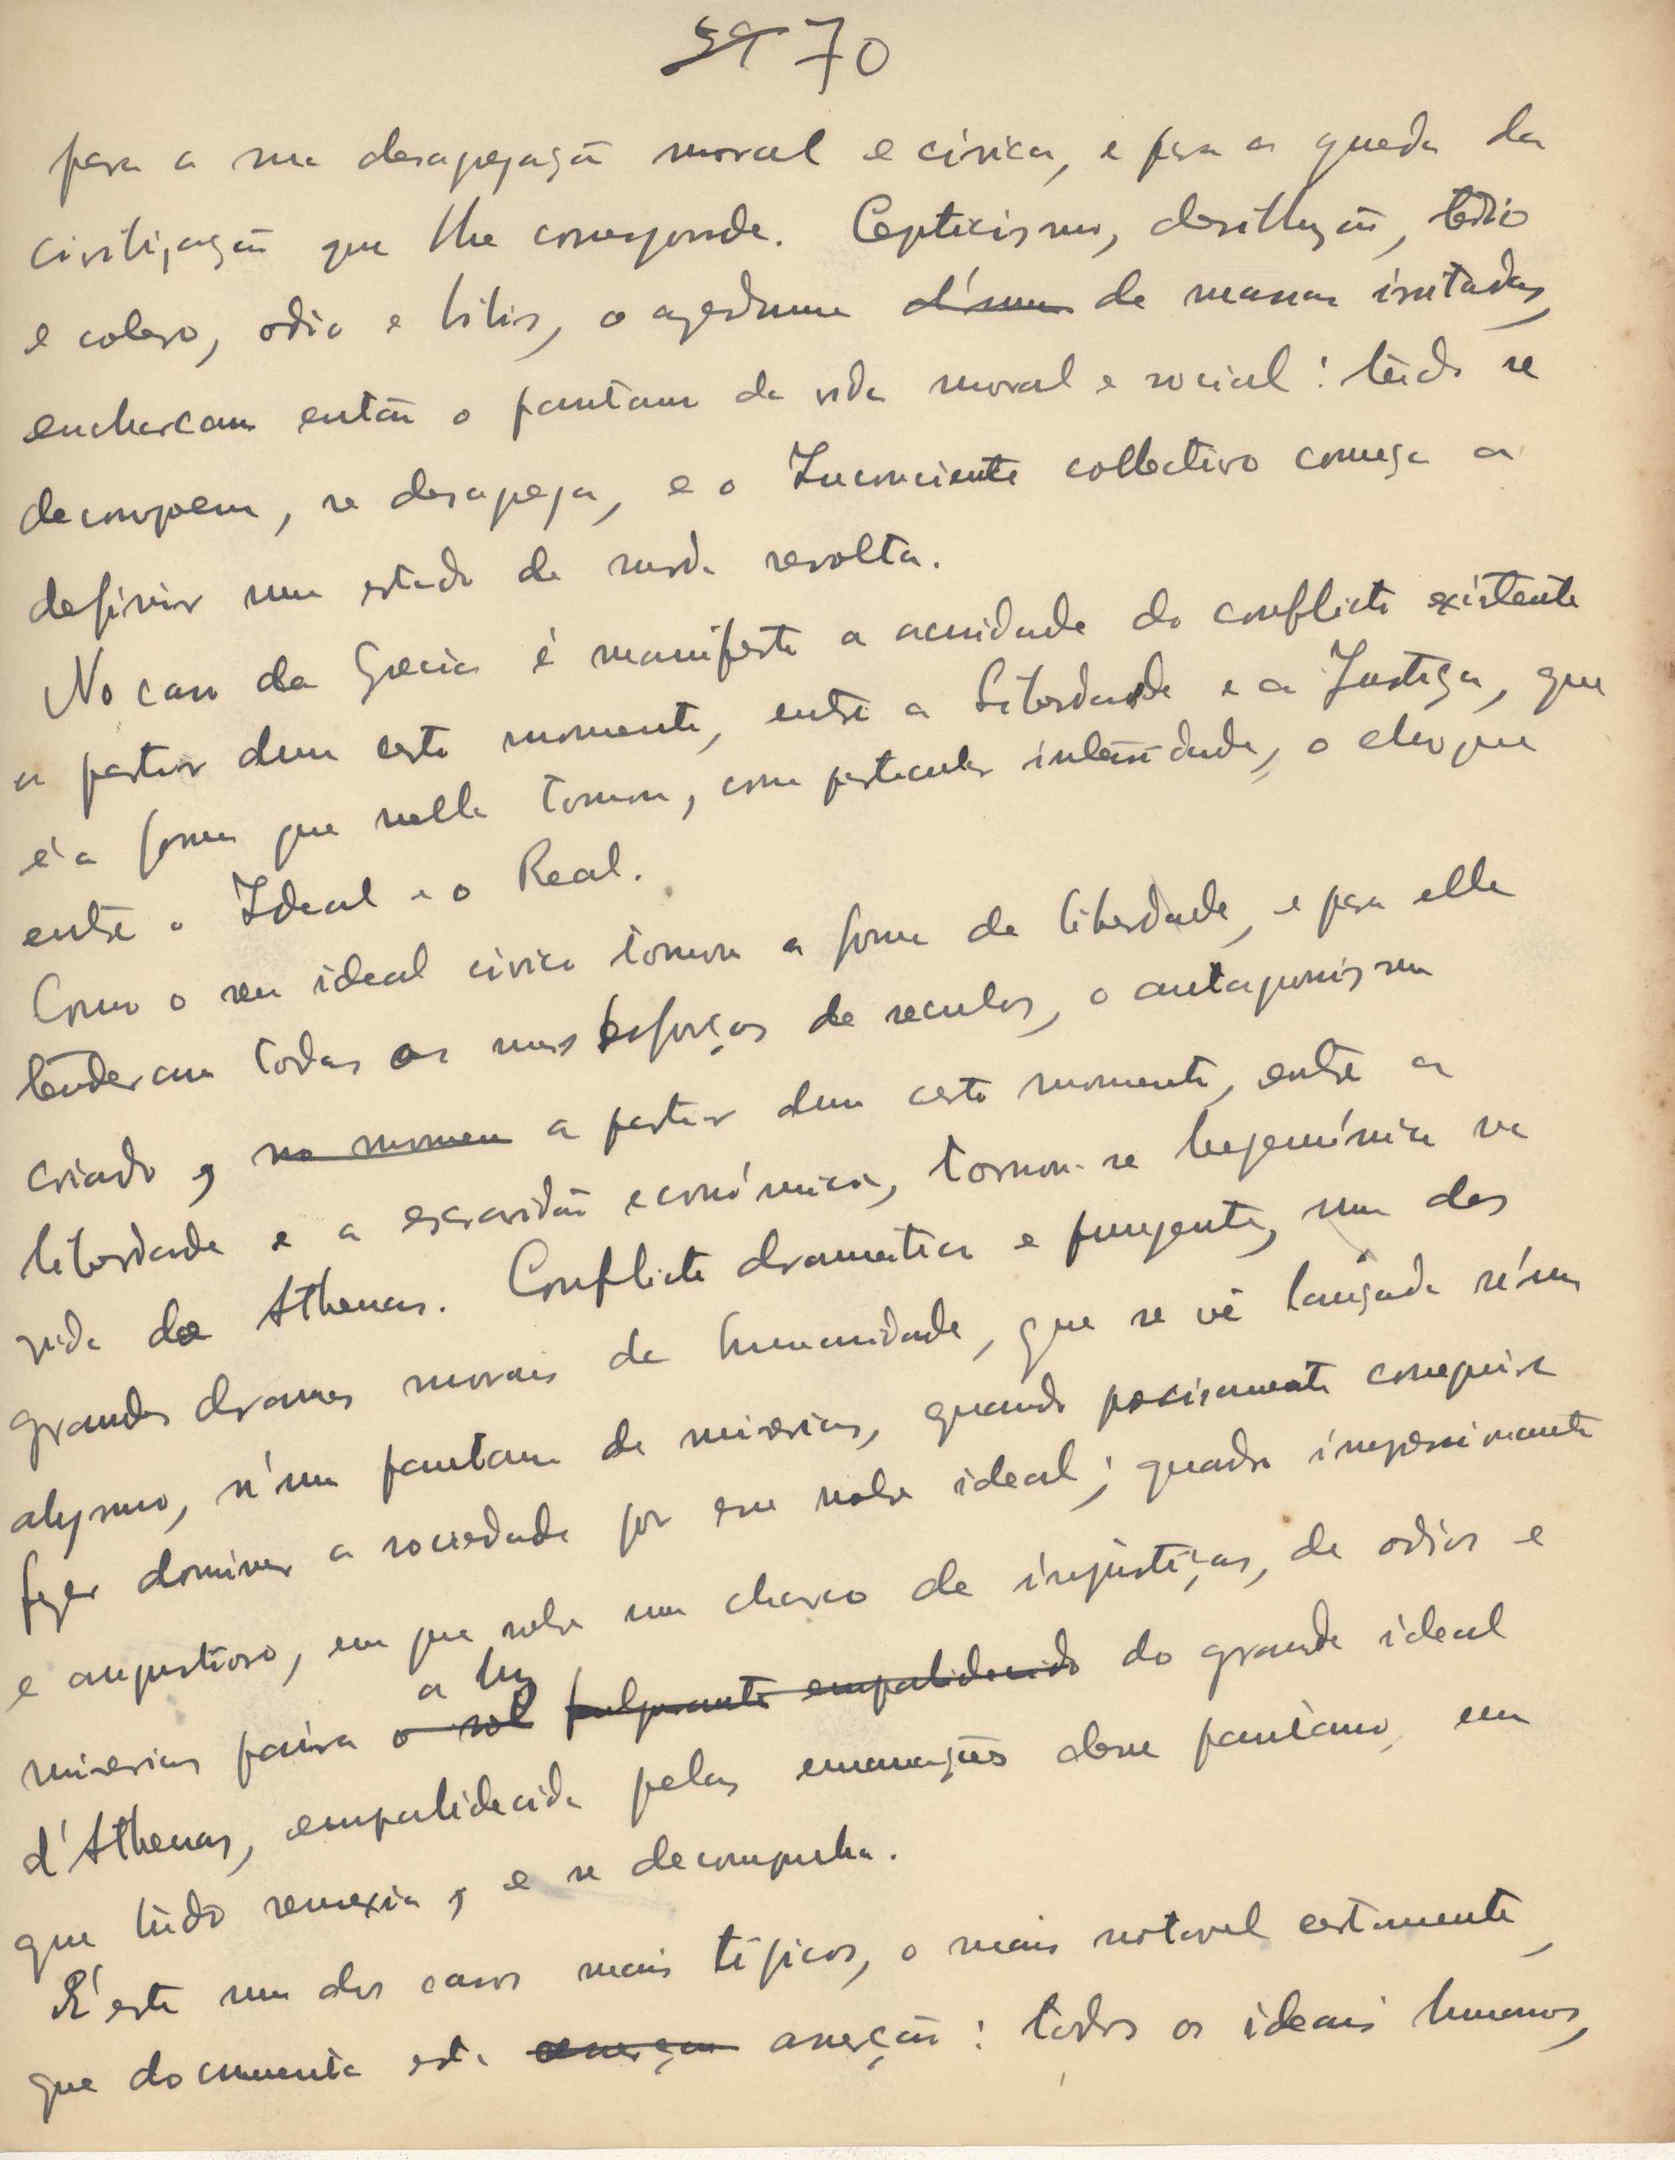 70
para a sua desagregação moral e civica, e para a queda da
civilização que lhe corresponde. Cepticismo, desillusão, tedio
e colera, odio e bilis, o azedume d'uma de massas irritadas,
encharcam então o pantano da vida moral e social: túdo se
decompoem, se desagrega, e o Inconciente collectivo começa a
definir um estado de surda revolta.
No caso da Grecia é manifesta a acuidade do conflicto existente
a partir dum certo momento, entre a Liberdade e a Justiça, que
é a forma que nella tomou, com particular intensidade, o choque
entre o Ideal e o Real.
Como o seu ideal civico tomou a forma da liberdade, e para ella
tenderam todos os seus esforços de seculos, o antagonismo
criado, no momen a partir dum certo momento, entre a
liberdade e a escravidão económica, tornou-se hegemónico na
vida de Athenas. Conflicto dramatico e pungente, um dos
grandes dramas morais da humanidade, que se vê lançada n'um
abysmo, n'um pantano de miserias, quando precisamente conseguira
fazer dominar a sociedade por esse nobre ideal; quadro impressionante
e angustioso, em que sobre um charco de injustiças, de odios e
a luz
miserias paira o sol fulgurante empalidecido do grande ideal
d'Athenas, empalidecida pelas emanações desse pantano, em
que túdo remexia, e se decompunha.
É este um dos casos mais típicos, o mais notavel certamente,
que documenta esta asserção: todos os ideais humanos,